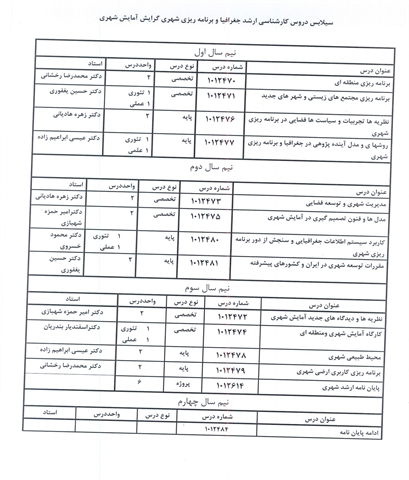 سیلابس دروس کارشناسی ارشد جغرافیا و برنامه ریزی شهری گرایش آمایش شهری
نیم سال اول
عنوان درس شماره درس نوع درس واحددرس استاد
برنامه ریزی منطقه ای ۱۰۱۲۴۷۰ تخصصی ۲ دکتر محمدرضا رخشانی
برنامه ریزی مجتمع های زیستی و شهر های جدید ۱۰۱۲۴۷۱ تخصصی ۱ تئوری ۱ عملی دکتر حسین یغفوری
نظریه ها تجربیات و سیاست ها فضایی در برنامه ریزی شهری ۱۰۱۲۴۷۶ پایه ۲ دکتر زهره هادیانی
روشها ی و مدل آینده پژوهی در جغرافیا و برنامه ریزی شهری ۱۰۱۲۴۷۷ پایه ۱ تئوری ۱ علمی دکتر عیسی ابراهیم زاده
نیم سال دوم
عنوان درس شماره درس نوع درس واحددرس استاد
مدیریت شهری و توسعه فضایی ۱۰۱۲۴۷۳ تخصصی ۲ دکتر زهره هادیانی
مدل ها و فنون تصمیم گیری در آمایش شهری ۱۰۱۲۴۷۵ تخصصی ۲ دکترامیر حمزه شهبازی
کاربرد سیستم اطلاعات جغرافیایی و سنجش از دور برنامه ریزی شهری ۱۰۱۲۴۸۰ پایه ۱ تئوری ۱ عملی دکتر محمود خسروی
مقررات توسعه شهری در ایران و کشورهای پیشرفته ۱۰۱۲۴۸۱ پایه ۲ دکتر حسین یغفوری
نیم سال سوم
عنوان درس شماره درس نوع درس واحددرس استاد
نظریه ها و دیدگاه های جدید آمایش شهری ۱۰۱۲۴۷۲ تخصصی ۲ دکتر امیر حمزه شهبازی
کارگاه آمایش شهری ومنطقه ای ۱۰۱۲۴۷۴ تخصصی ۱ تئوری ۱ عملی دکتراسفندیار بندریان
محیط طبیعی شهری ۱۰۱۲۴۷۸ پایه ۲ دکتر عیسی ابراهیم زاده
برنامه ریزی کاربری ارضی شهری ۱۰۱۲۴۷۹ پایه ۲ دکتر محمدرضا رخشانی
پایان نامه ارشد شهری ۱۰۱۲۶۱۴ پروژه ۶
نیم سال چهارم
عنوان درس شماره درس نوع درس واحددرس استاد
ادامه پایان نامه ۱۰۱۲۴۸۴